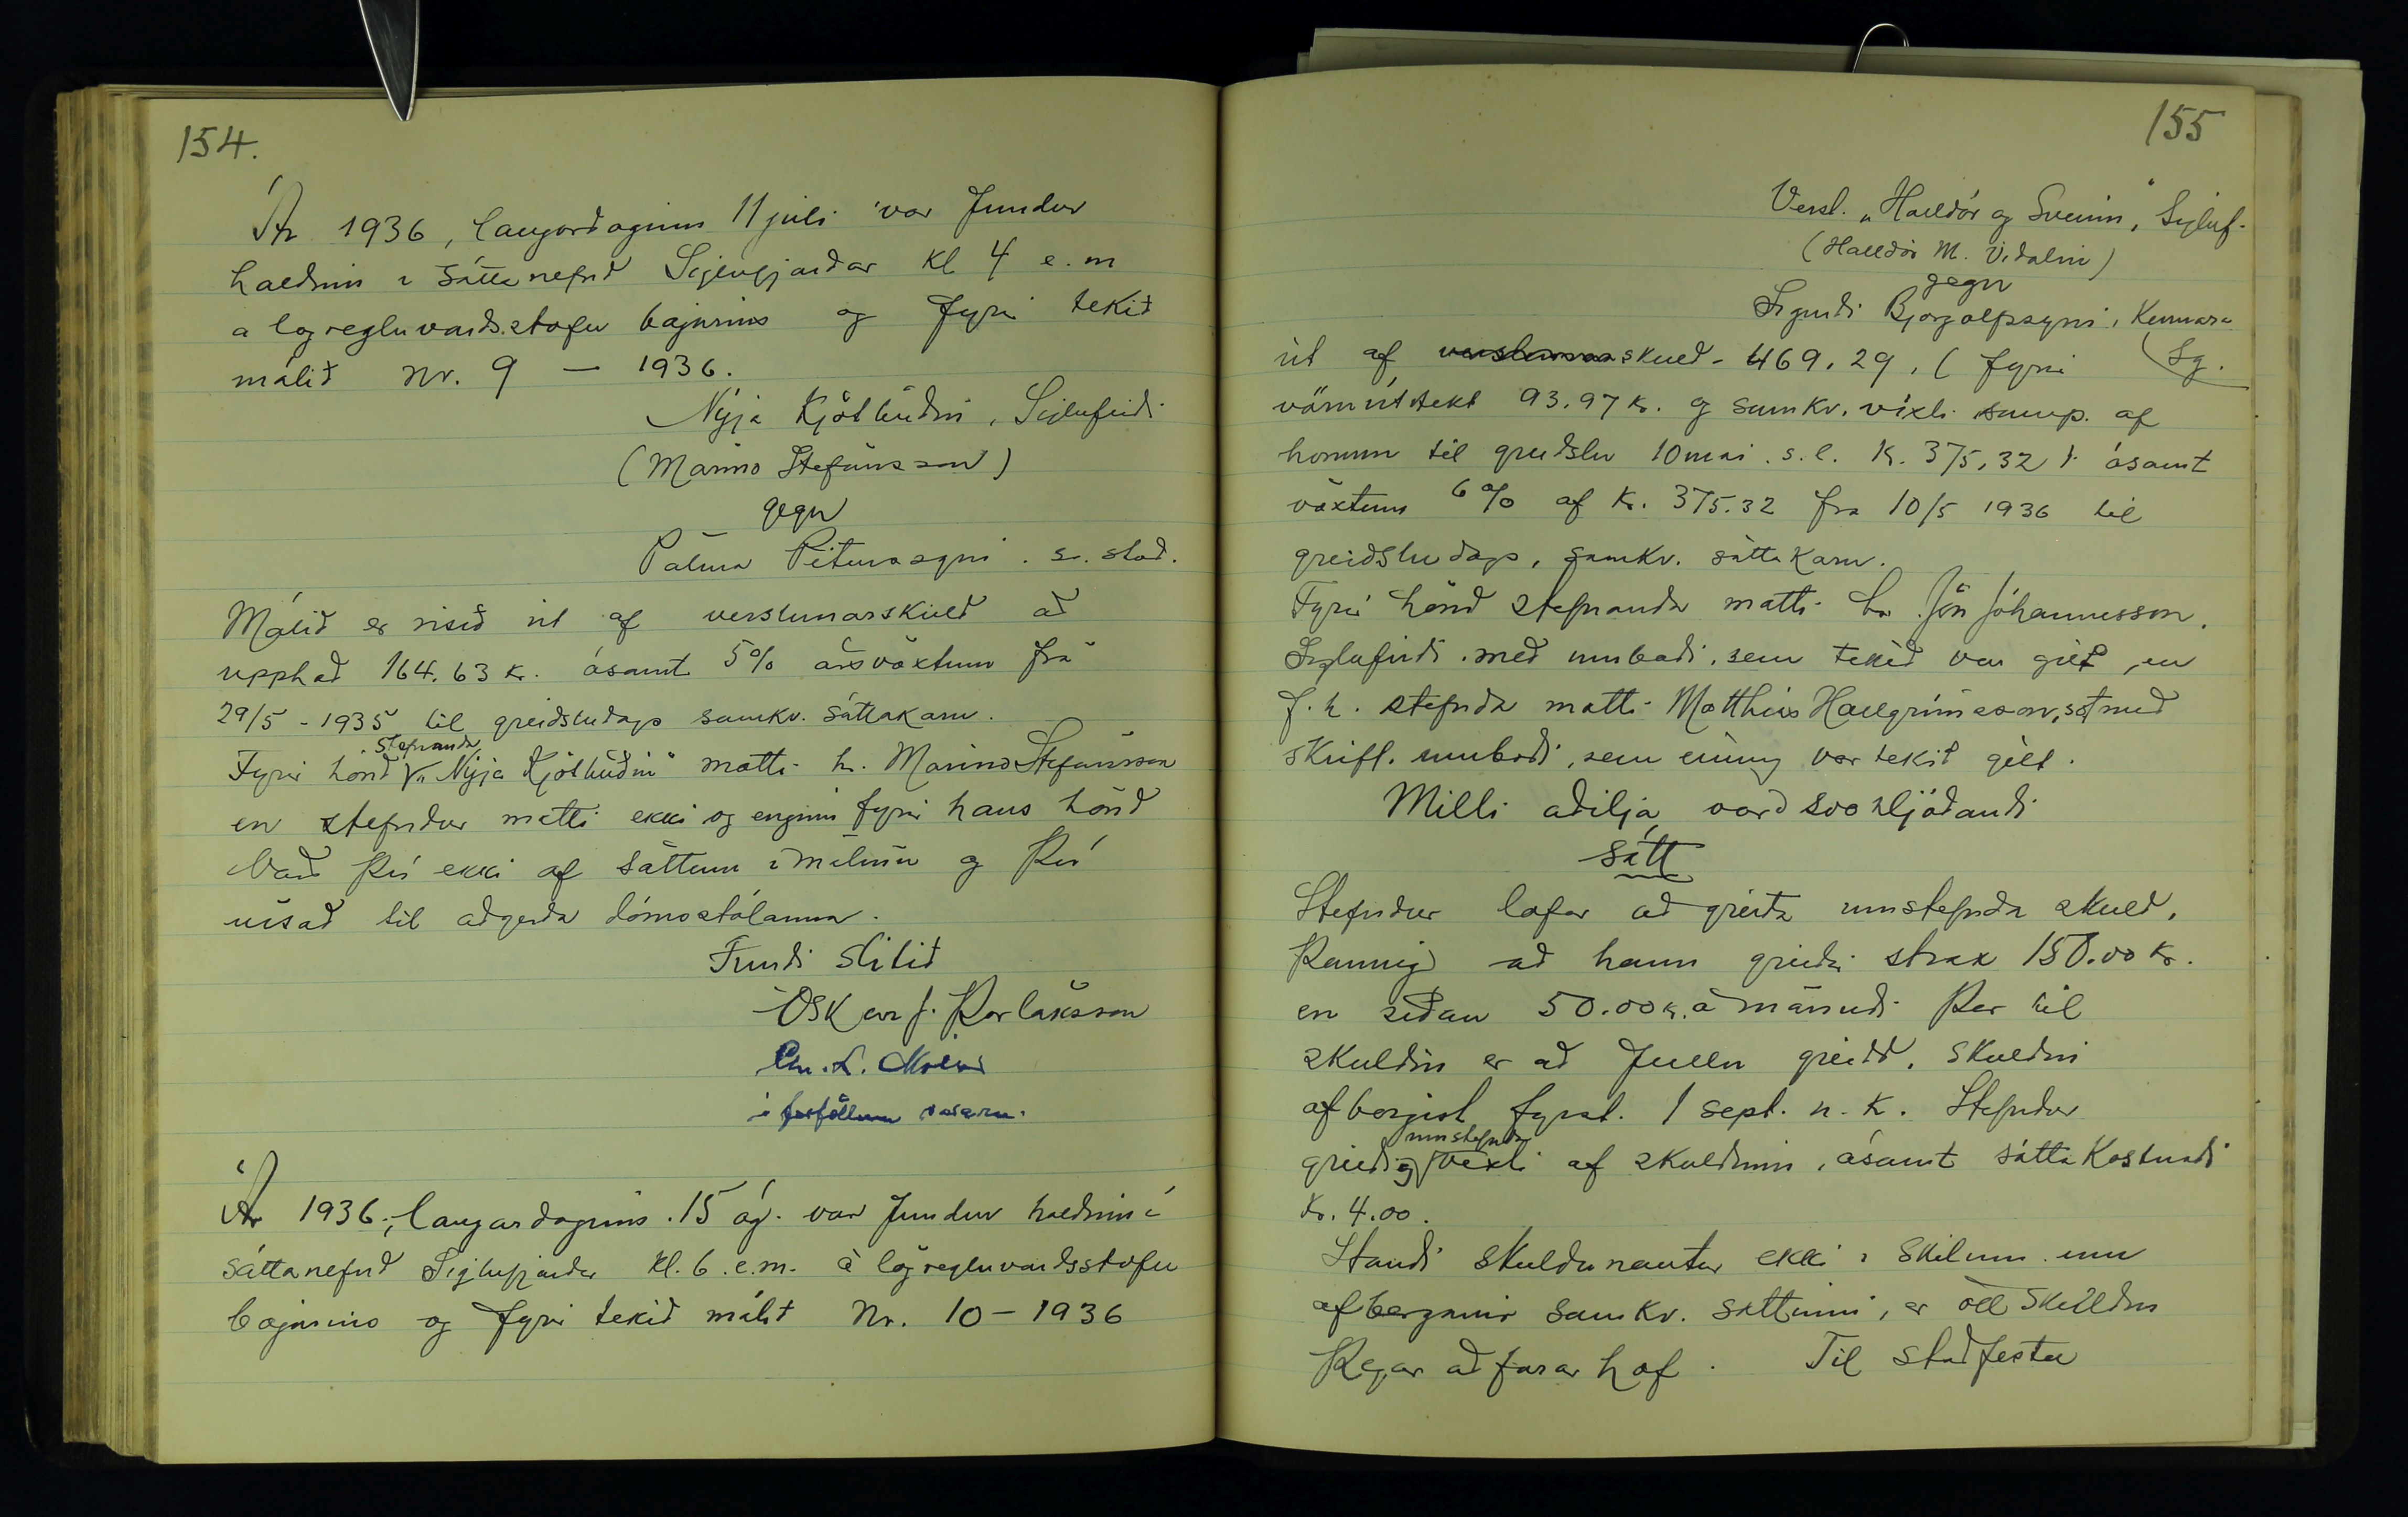 154.
Ár 1936, laugardaginn 11 júli var fundur
haldinn i Sáttanefnd Siglufjarðar kl 4 e.m
a lögregluvarðstofu bæjarins og fyrir tekið
málið nr. 9 — 1936.
Nýja Kjötbúðin, Siglufirði
(Marino Stefánsson)
gegn
Pálma Péturssyni. s. stað.
Málið er risið út af verslunarskuld að
upphæð 164.63 kr. ásamt 5% ársvöxtum frá
29/5 - 1935 til greiðsludags samkv. sáttakæru.
stefnanda
Fyrir hönd „Nýja Kjötbúðin" mætti hr. Marino Stefánsson
en stefndur mætti ekki og enginn fyrir hans hönd
Varð því ekki af sáttum i málinu og því
vísað til aðgerða dómstólanna.
Fundi slitið
Óskar J. Þorláksson
Chr. L. Möller
i forföllum varam.
Ár 1936, laugardaginn 15 ág. var fundur haldinn í
Sáttanefnd Siglufjarðar kl. 6 e.m. á lögregluvarðsstofu
bæjarins og fyrir tekið málið Nr. 10 - 1936
155
Versl. „Halldór og Sveinn", Sigluf.
(Halldór M. Vídalín)
gegn
Sigurði Björgólfssyni, Kennara
Sg.
út af verslunarskuld - 469.29, ( fyrir
vöruúttekt 93.97 kr. og samkv. víxli samþ. af
honum til greiðslu 10 mai s.l. kr. 375,32 ) ásamt
vöxtum 6% af kr. 375.32 fra 10/5 1936 til
greiðsludags, samkv. sáttakæru.
Fyrir hönd stefnanda mætti hr. Jón Jóhannesson,
Siglufirði með umboði, sem tekið var gilt, en
f. h. stefnda mætti Matthías Hallgrímsson, með
skrifl. umboði, sem einnig var tekið gilt.
Milli aðilja varð svohljóðandi
Sátt
Stefndur lofar að greiða umstefnda skuld,
þannig að hann greiði strax 150.00 kr.
en síðan 50.00 kr. á mánuði þar til
skuldin er að fullu greidd. Skuldin
afborgist fyrst. 1 sept. n. k. Stefndur
umstefnda
greiði og vexti af skuldinni, ásamt sáttakostnaði
kr. 4.00.
Standi skuldunautur ekki i skilum um
afborganir samkv. sáttinni, er öll skuldin
þegar aðfararhæf. Til staðfestu